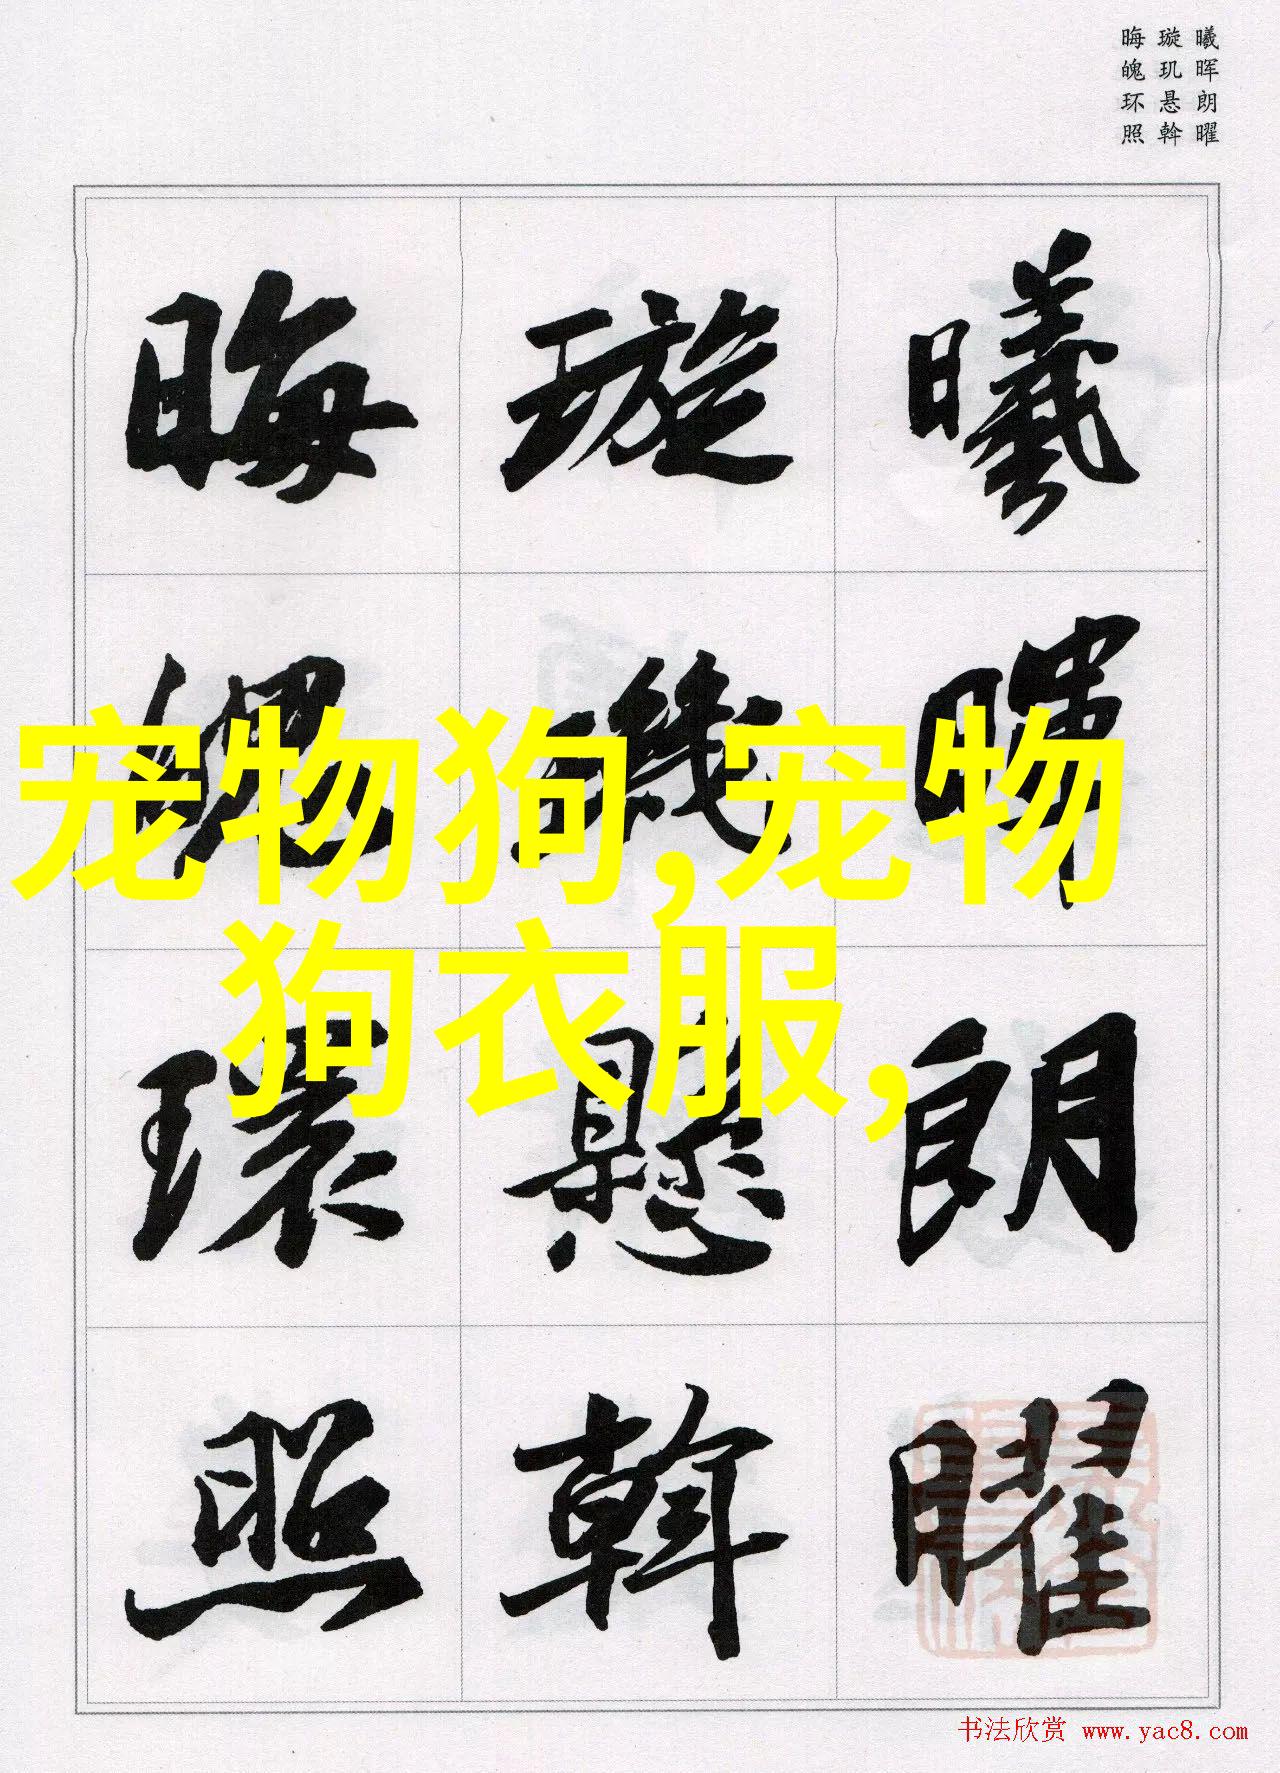 曦晖朗曜
璇玑悬斡
晦魄环照
曦暉朗曜
璇璣懸斡
晦魄環照
宠物狗,宠物
狗衣服,
书法欣赏 www.yac8.com